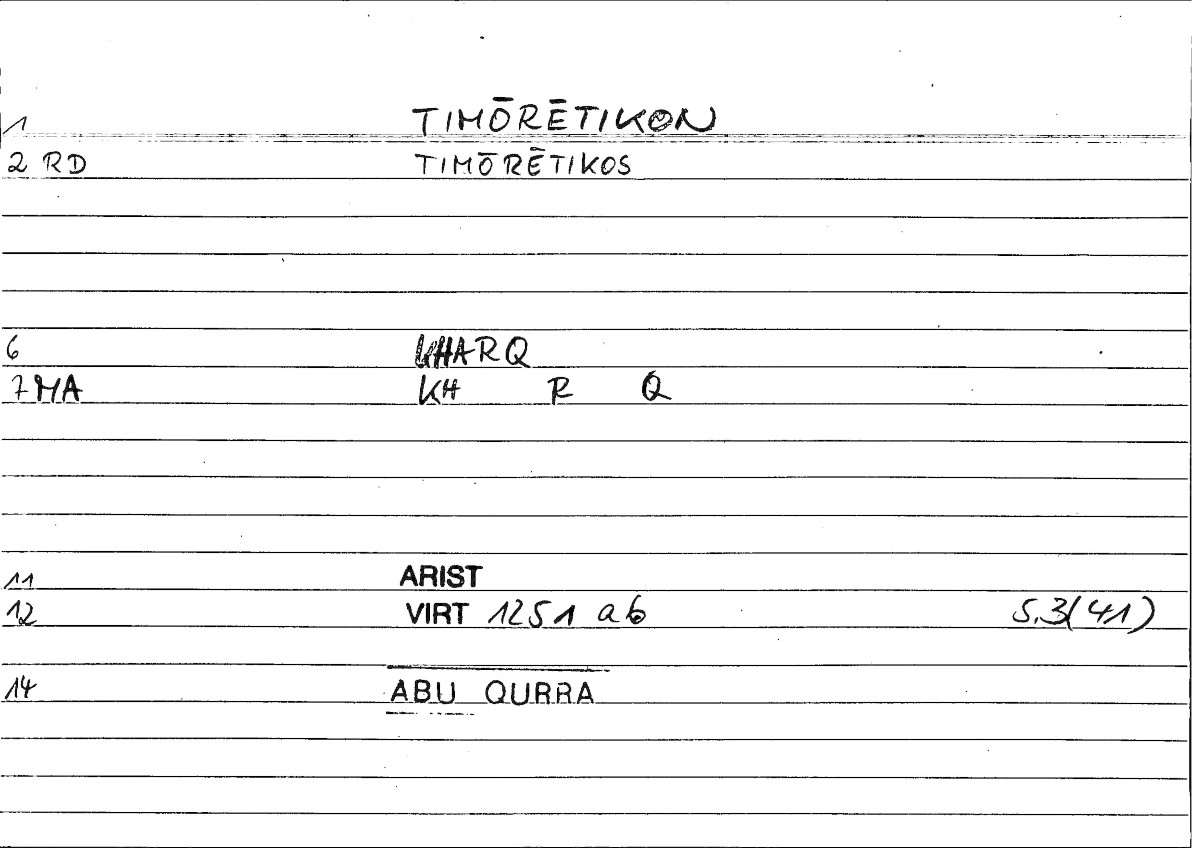 1 TIMŌRĒTIKON
2 RD TIMŌRĒTIKOS
6 KHARQ
7 MA KH R Q
11 ARIST
12 VIRT 1251 a6 5.3(41)
14 ABU QURRA